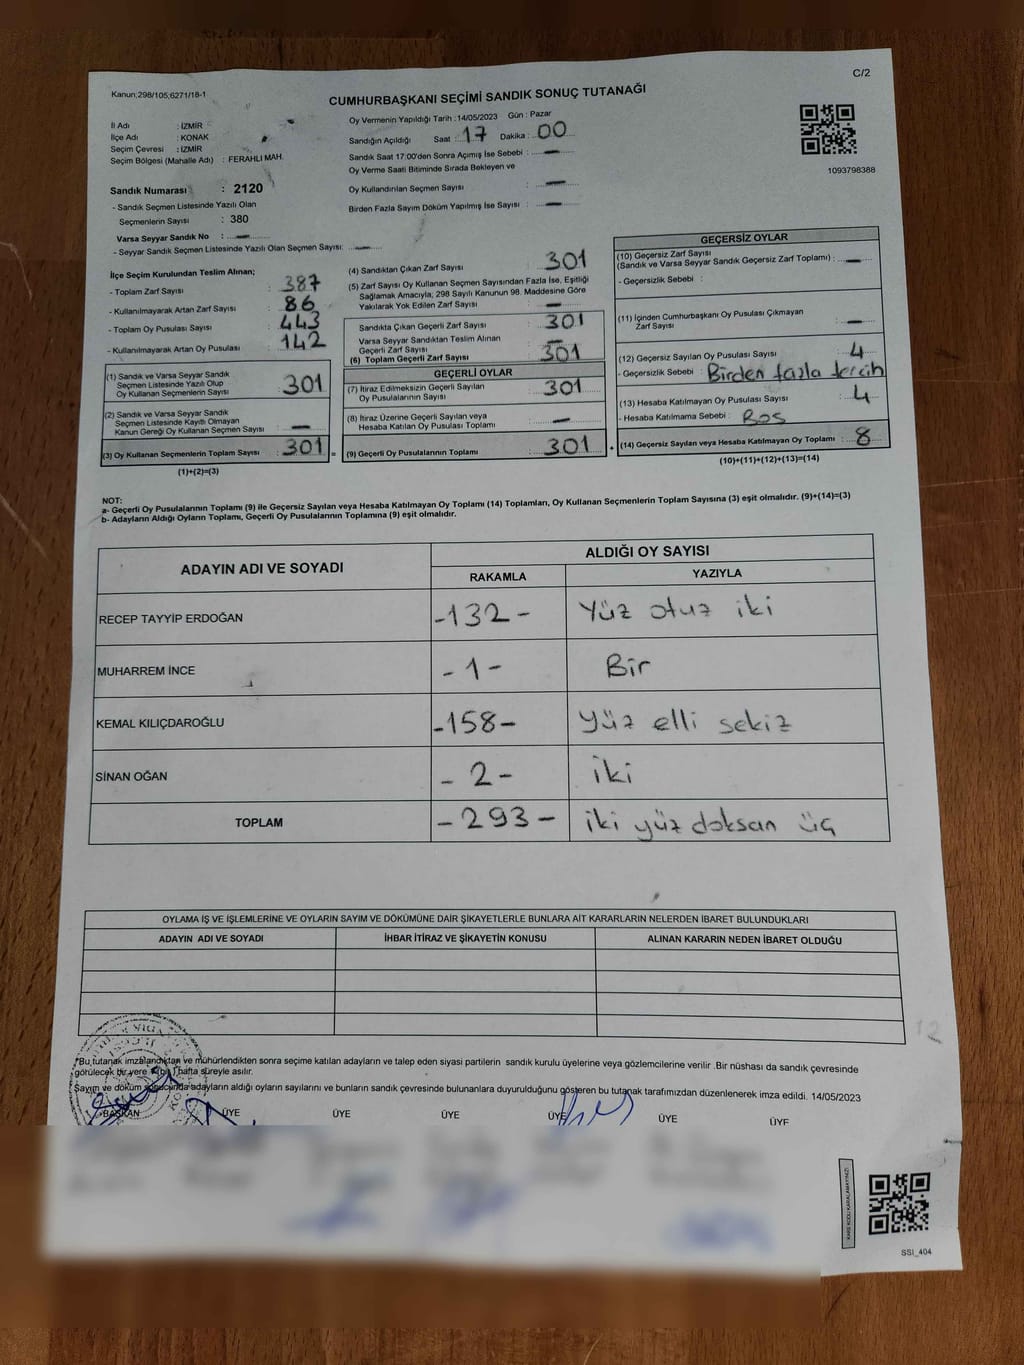 C/2
Kanun;298/105;6271/18-1
CUMHURBAŞKANI SEÇİMİ SANDIK SONUÇ TUTANAĞI
İl Adı : İZMİR
İlçe Adı : KONAK
Seçim Çevresi : İZMİR
Seçim Bölgesi (Mahalle Adı) : FERAHLI MAH.
Sandık Numarası : 2120
- Sandık Seçmen Listesinde Yazılı Olan
Seçmenlerin Sayısı : 380
Varsa Seyyar Sandık No : —
- Seyyar Sandık Seçmen Listesinde Yazılı Olan Seçmen Sayısı: —
Oy Vermenin Yapıldığı Tarih : 14/05/2023 Gün : Pazar
Sandığın Açıldığı Saat : 17 Dakika : 00
Sandık Saat 17:00'den Sonra Açımış İse Sebebi : —
Oy Verme Saati Bitiminde Sırada Bekleyen ve
Oy Kullandırılan Seçmen Sayısı : —
Birden Fazla Sayım Döküm Yapılmış İse Sayısı : —
1093798388
İlçe Seçim Kurulundan Teslim Alınan;
- Toplam Zarf Sayısı : 387
- Kullanılmayarak Artan Zarf Sayısı : 86
- Toplam Oy Pusulası Sayısı : 443
- Kullanılmayarak Artan Oy Pusulası : 142
(1) Sandık ve Varsa Seyyar Sandık
Seçmen Listesinde Yazılı Olup
Oy Kullanan Seçmenlerin Sayısı : 301
(2) Sandık ve Varsa Seyyar Sandık
Seçmen Listesinde Kayıtlı Olmayan
Kanun Gereği Oy Kullanan Seçmen Sayısı : —
(3) Oy Kullanan Seçmenlerin Toplam Sayısı : 301 =
(1)+(2)=(3)
(4) Sandıktan Çıkan Zarf Sayısı : 301
(5) Zarf Sayısı Oy Kullanan Seçmen Sayısından Fazla İse, Eşitliği
Sağlamak Amacıyla; 298 Sayılı Kanunun 98. Maddesine Göre
Yakılarak Yok Edilen Zarf Sayısı : —
Sandıkta Çıkan Geçerli Zarf Sayısı : 301
Varsa Seyyar Sandıktan Teslim Alınan
Geçerli Zarf Sayısı : —
(6) Toplam Geçerli Zarf Sayısı : 301
GEÇERLİ OYLAR
(7) İtiraz Edilmeksizin Geçerli Sayılan
Oy Pusulalarının Sayısı : 301
(8) İtiraz Üzerine Geçerli Sayılan veya
Hesaba Katılan Oy Pusulası Toplamı : —
(9) Geçerli Oy Pusulalarının Toplamı : 301 +
GEÇERSİZ OYLAR
(10) Geçersiz Zarf Sayısı
(Sandık ve Varsa Seyyar Sandık Geçersiz Zarf Toplamı) : —
- Geçersizlik Sebebi :
(11) İçinden Cumhurbaşkanı Oy Pusulası Çıkmayan
Zarf Sayısı : —
(12) Geçersiz Sayılan Oy Pusulası Sayısı : 4
- Geçersizlik Sebebi : Birden fazla tercih
(13) Hesaba Katılmayan Oy Pusulası Sayısı : 4
- Hesaba Katılmama Sebebi : Boş
(14) Geçersiz Sayılan veya Hesaba Katılmayan Oy Toplamı : 8
(10)+(11)+(12)+(13)=(14)
NOT:
a- Geçerli Oy Pusulalarının Toplamı (9) ile Geçersiz Sayılan veya Hesaba Katılmayan Oy Toplamı (14) Toplamları, Oy Kullanan Seçmenlerin Toplam Sayısına (3) eşit olmalıdır. (9)+(14)=(3)
b- Adayların Aldığı Oyların Toplamı, Geçerli Oy Pusulalarının Toplamına (9) eşit olmalıdır.
ADAYIN ADI VE SOYADI
ALDIĞI OY SAYISI
RAKAMLA YAZIYLA
RECEP TAYYİP ERDOĞAN -132- Yüz otuz iki
MUHARREM İNCE -1- Bir
KEMAL KILIÇDAROĞLU -158- yüz elli sekiz
SİNAN OĞAN -2- iki
TOPLAM -293- iki yüz doksan üç
OYLAMA İŞ VE İŞLEMLERİNE VE OYLARIN SAYIM VE DÖKÜMÜNE DAİR ŞİKAYETLERLE BUNLARA AİT KARARLARIN NELERDEN İBARET BULUNDUKLARI
ADAYIN ADI VE SOYADI İHBAR İTİRAZ VE ŞİKAYETİN KONUSU ALINAN KARARIN NEDEN İBARET OLDUĞU
*Bu tutanak imzalandıktan ve mühürlendikten sonra seçime katılan adayların ve talep eden siyasi partilerin sandık kurulu üyelerine veya gözlemcilerine verilir .Bir nüshası da sandık çevresinde
görülecek bir yere 1 (bir) hafta süreyle asılır.
Sayım ve döküm sonucunda adayların aldığı oyların sayılarını ve bunların sandık çevresinde bulunanlara duyurulduğunu gösteren bu tutanak tarafımızdan düzenlenerek imza edildi. 14/05/2023
BAŞKAN ÜYE ÜYE ÜYE ÜYE ÜYE ÜYE
KARE KODU KARALAMAYINIZ!
SSI_404